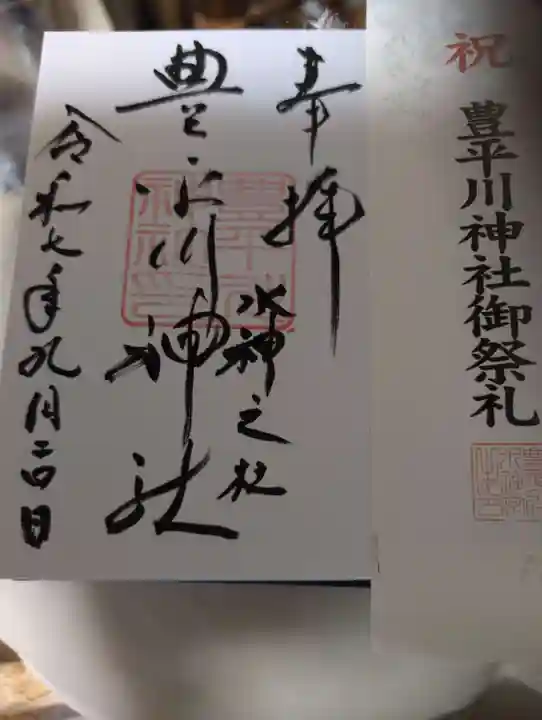 祝
豊平川神社御祭礼
奉拝
水神之社
豊平川神社
令和七年九月二四日